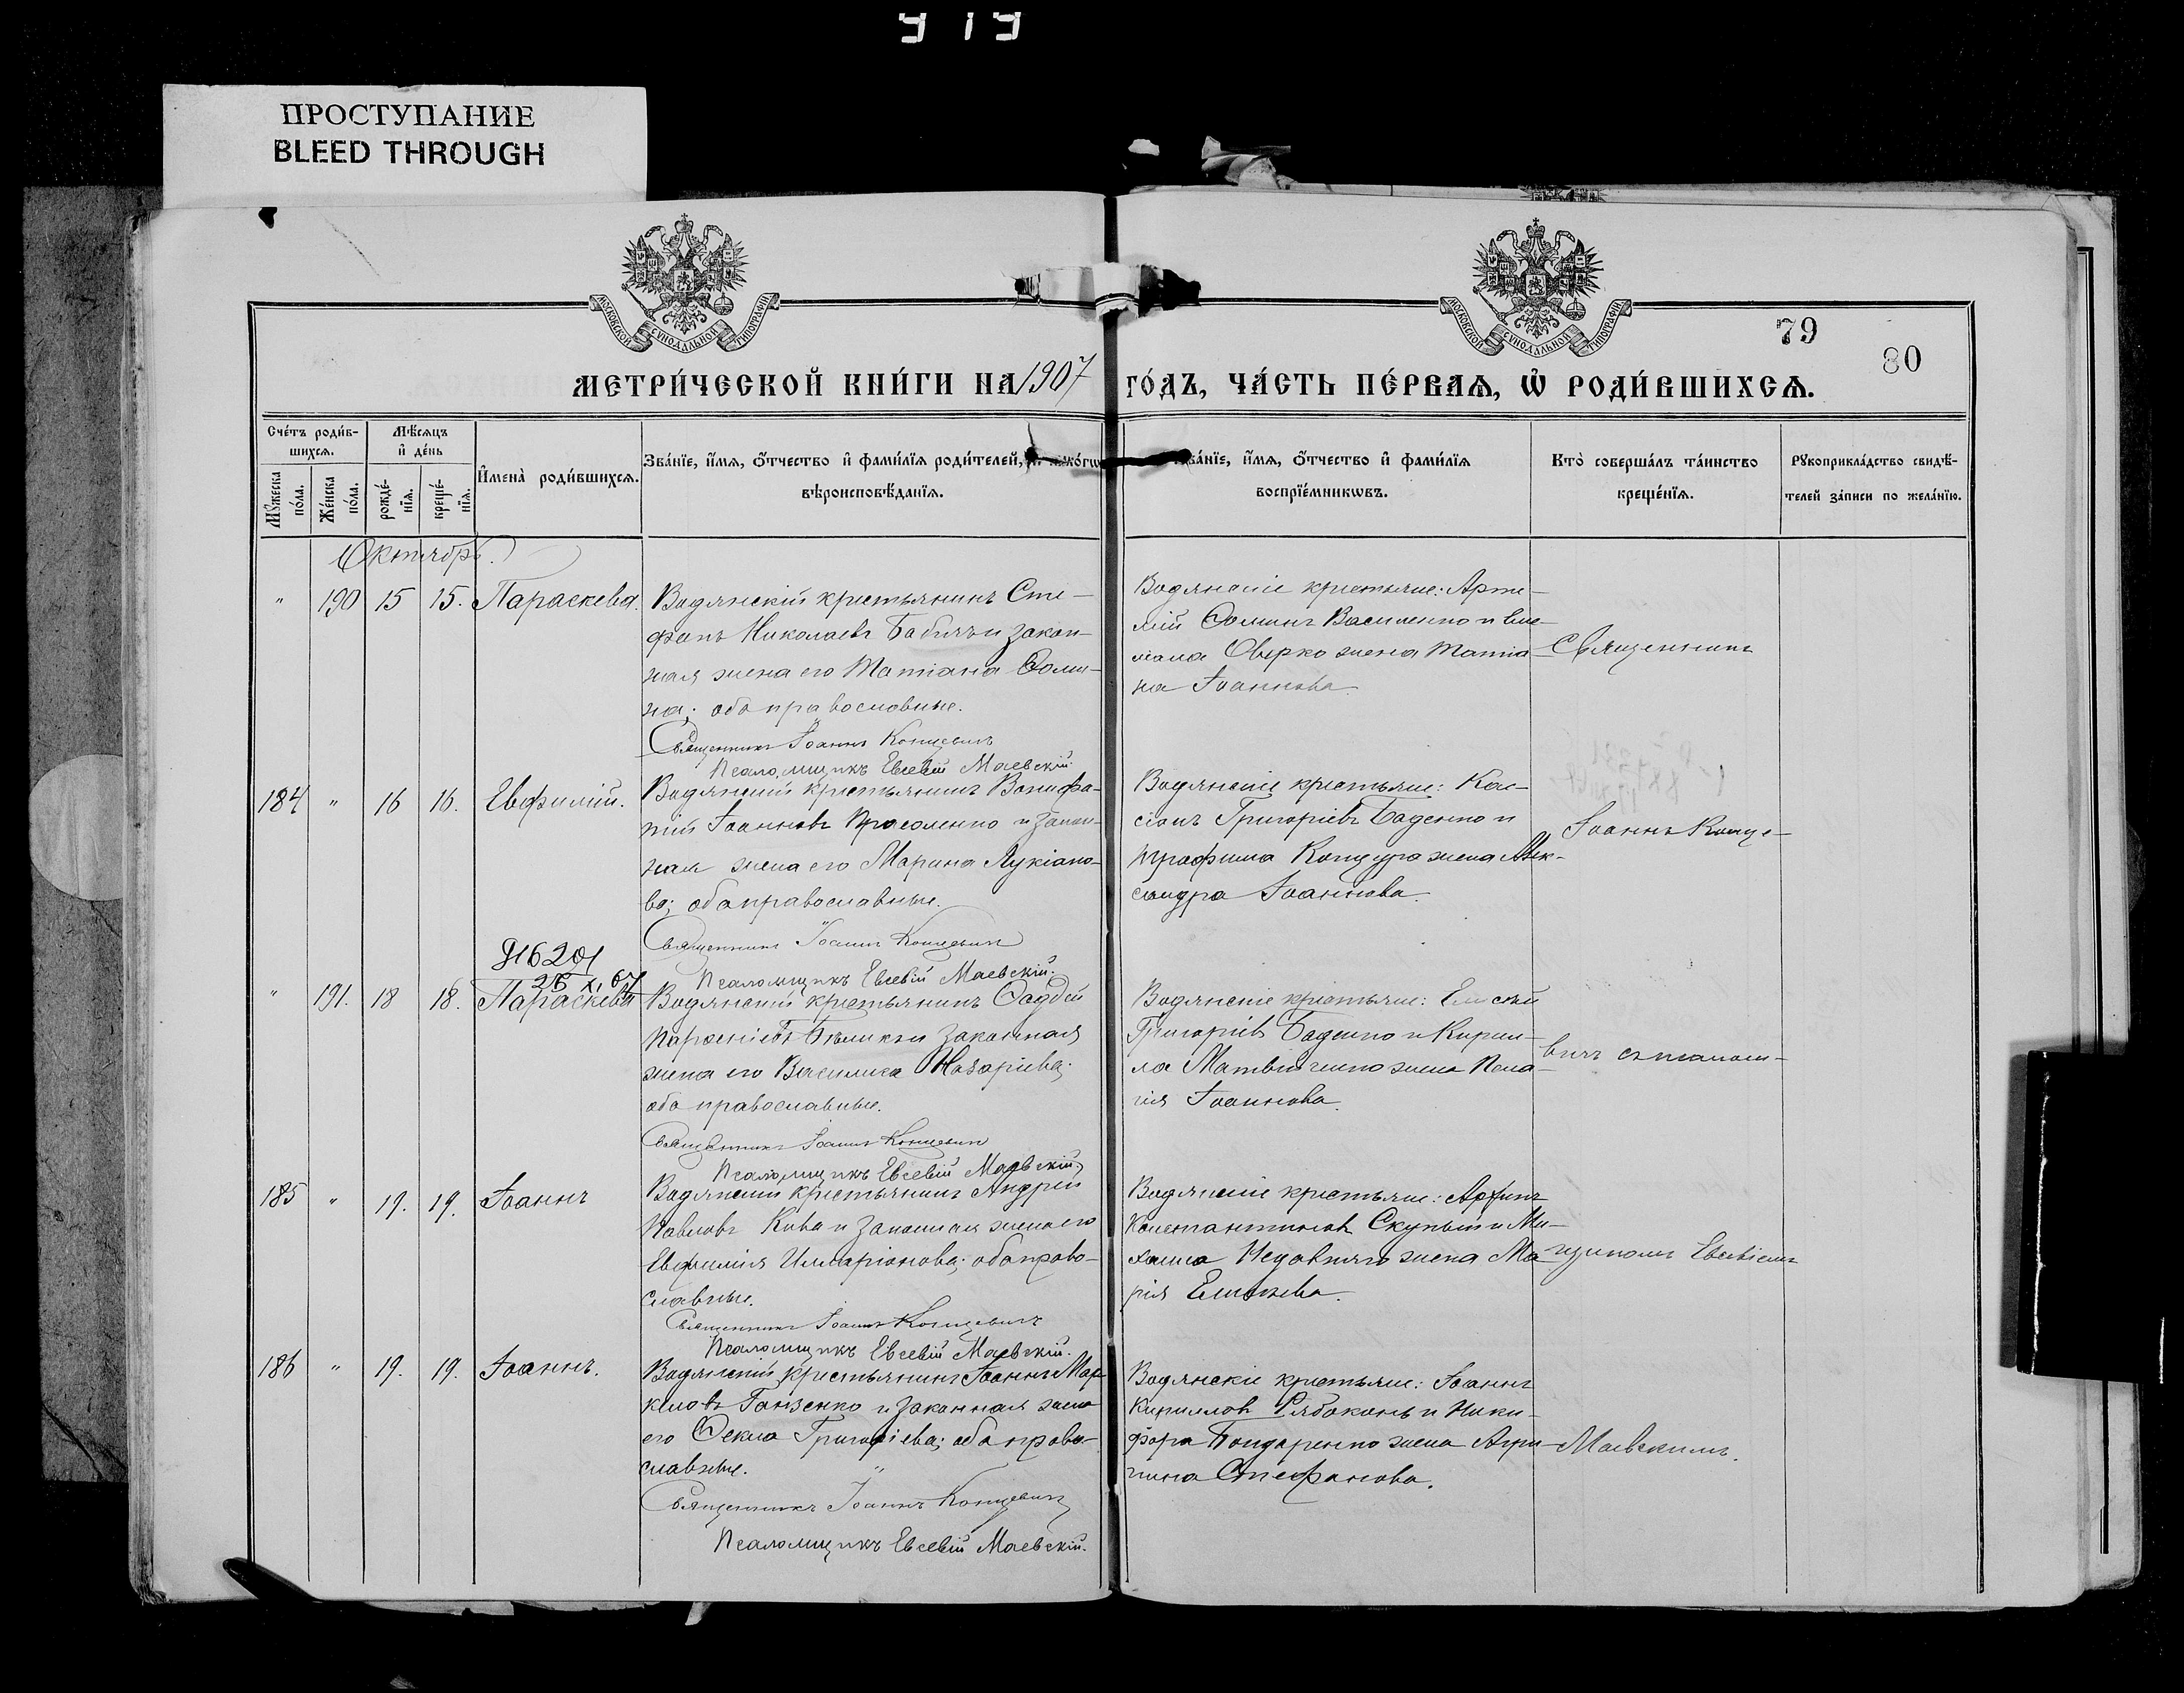 919
ПРОСТУПАНИЕ
BLEED THROUGH
МОСКОВСКОЙ СѴНОДАЛЬНОЙ ТИПОГРАФІИ
МОСКОВСКОЙ СѴНОДАЛЬНОЙ ТИПОГРАФІИ
79
80
МЕТРИ́ЧЕСКОЙ КНИ́ГИ НА 1907 ГО́ДЪ, ЧА́СТЬ ПЕ́РВАѦ, Ѡ҆ РОДИ́ВШИХСѦ.
Сче́тъ роди́в-
шихсѧ.
Мꙋ́жеска по́ла.
Же́нска по́ла.
Мѣ́сѧцъ
и҆ де́нь
рожде́-
нїѧ.
креще́-
нїѧ.
И҆мена̀ роди́вшихсѧ.
Зва́нїе, и҆́мѧ, ѻ҆́тчество и҆ фами́лїѧ роди́телей,
вѣроисповѣ́данїѧ.
Зва́нїе, и҆́мѧ, ѻ҆́тчество и҆ фами́лїѧ
воспрїе́мникѡвъ.
Кто̀ соверша́лъ та́инство
креще́нїѧ.
Рꙋкоприкла́дство свидѣ́-
телей за́писи по жела́нїю.
Октябрь.
" 190 15 15. Параскева.
Водянскій крестьянинъ Сте-
фанъ Николаевъ Бабичъ и закон-
ная жена его Татіана Ѳоми-
на; оба православные.
Священникъ Іоаннъ Концевичъ
Псаломщикъ Евсевій Маевскій.
Водянскіе крестьяне: Арте-
мій Ѳоминъ Василенко и
Оверко жена Татіа-
на Іоаннова.
Священникъ
184 " 16 16. Евфимій.
Водянскій крестьянинъ Вонифа-
тій Іоанновъ Прасоленко и закон-
ная жена его Марина Лукіано-
ва; оба православные.
Священникъ Іоаннъ Концевичъ
Псаломщикъ Евсевій Маевскій.
Водянскіе крестьяне: Кас-
сіанъ Григоріевъ Баденко и
Трофима Коцюра жена Алек-
сандра Іоаннова.
Іоаннъ Конце-
" 191. 18 18. Параскева
Водянскій крестьянинъ Ѳаддей
Парѳеніевъ Бѣликъ и законная
жена его Василиса Назаріева;
оба православные.
Священникъ Іоаннъ Концевичъ
Псаломщикъ Евсевій Маевскій.
Водянскіе крестьяне: Елисей
Григоріевъ Баденко и Кирил-
ла Матвіенко жена Пела-
гія Іоаннова.
вичъ съ псалом-
185 " 19. 19. Іоаннъ
Водянскій крестьянинъ Андрей
Павловъ Кива и законная жена его
Евфимія Илларіонова; оба право-
славные.
Священникъ Іоаннъ Концевичъ
Псаломщикъ Евсевій Маевскій.
Водянскіе крестьяне:
Константиновъ Скупый и Ми-
хаила жена Ма-
рія Елисеева.
щикомъ Евсевіемъ
186 " 19. 19. Іоаннъ.
Водянскій крестьянинъ Іоаннъ Мар-
келовъ Ганзенко и законная жена
его Ѳекла Григоріева; оба право-
славные.
Священникъ Іоаннъ Концевичъ
Псаломщикъ Евсевій Маевскій.
Водянскіе крестьяне: Іоаннъ
Кирилловъ Рябоконь и Ники-
фора Бондаренко жена Агри-
пина Стефанова.
Маевскимъ.